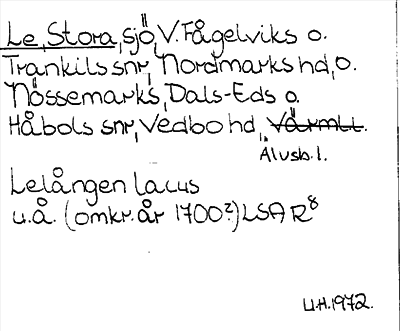 Le, Stora, sjö, V. Fågelviks o.
Trankils snr, Nordmarks hd, o.
Nössemarks, Dals-Eds o.
Håbols snr, Vedbo hd, Värml.
Älvsb. l.
Lelången lacus
u.å. (omkr. år 1700?) LSA R8
U.H. 1972.